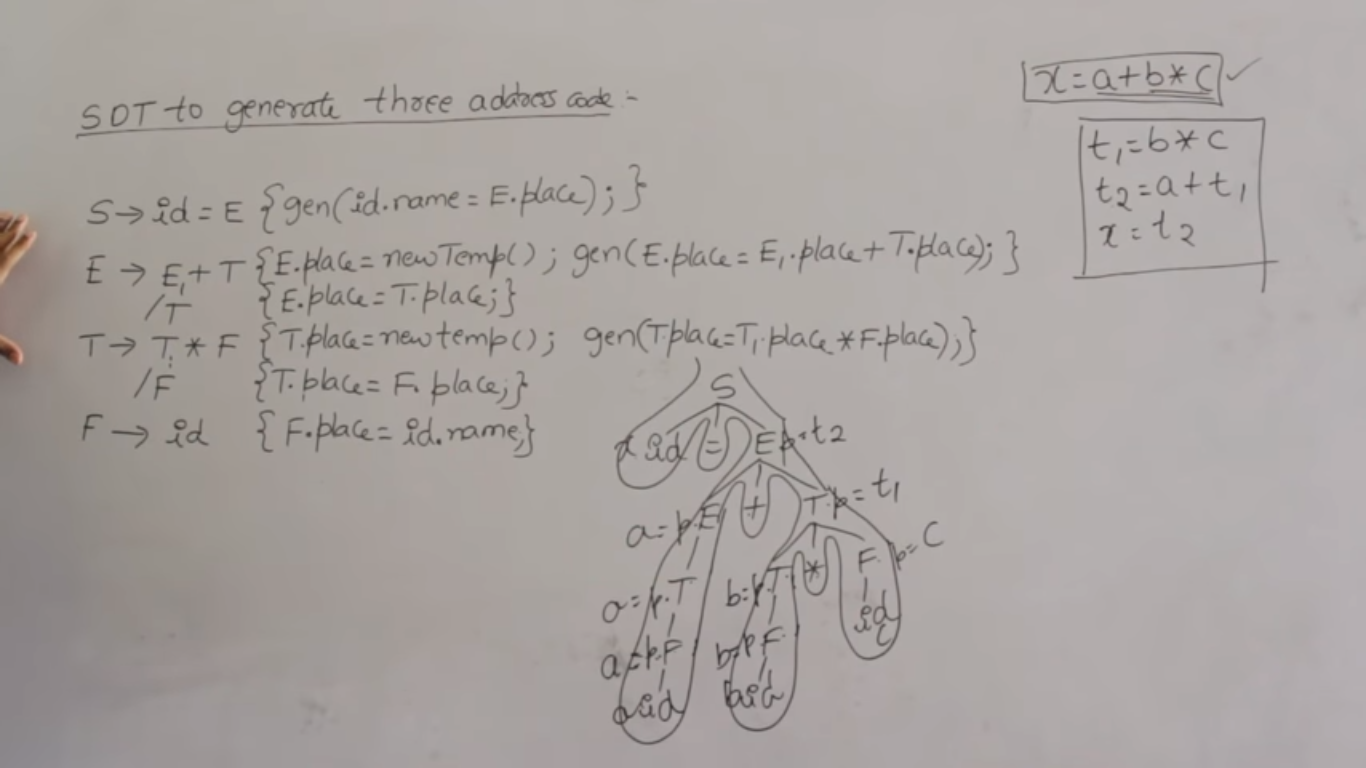 SDT to generate three address code :-
x = a + b * c ✓
t1 = b * c
t2 = a + t1
x = t2
S → id = E {gen(id.name = E.place); }
E → E1 + T {E.place = newTemp(); gen(E.place = E1.place + T.place); }
/T {E.place = T.place;}
T → T1 * F {T.place = newtemp(); gen(T.place = T1.place * F.place);}
/F {T.place = F.place;}
F → id {F.place = id.name;}
S
x id = E p = t2
a = p.E + T.p = t1
a = p.T b = p.T * F. p = c
a = p.F b = p.F id c
a id b id